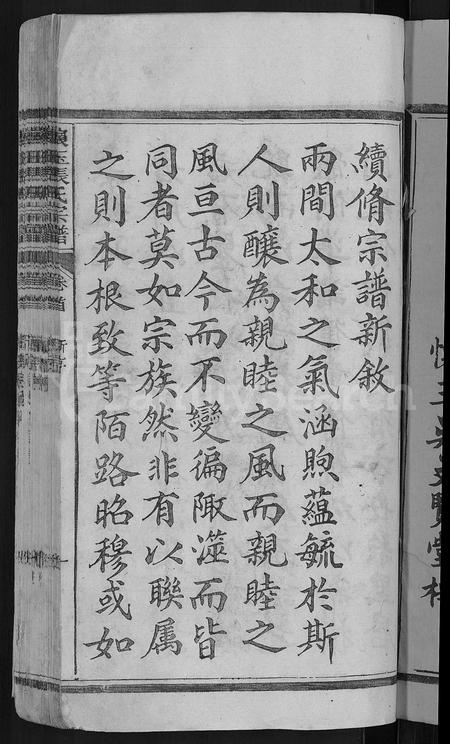 續脩宗譜新敘
兩間太和之氣涵煦蘊毓於斯
人則釀為親睦之風而親睦之
風亘古今而不變徧陬澨而皆
同者莫如宗族然非有以聯属
之則本根致等陌路昭穆或如
張氏宗譜
卷首